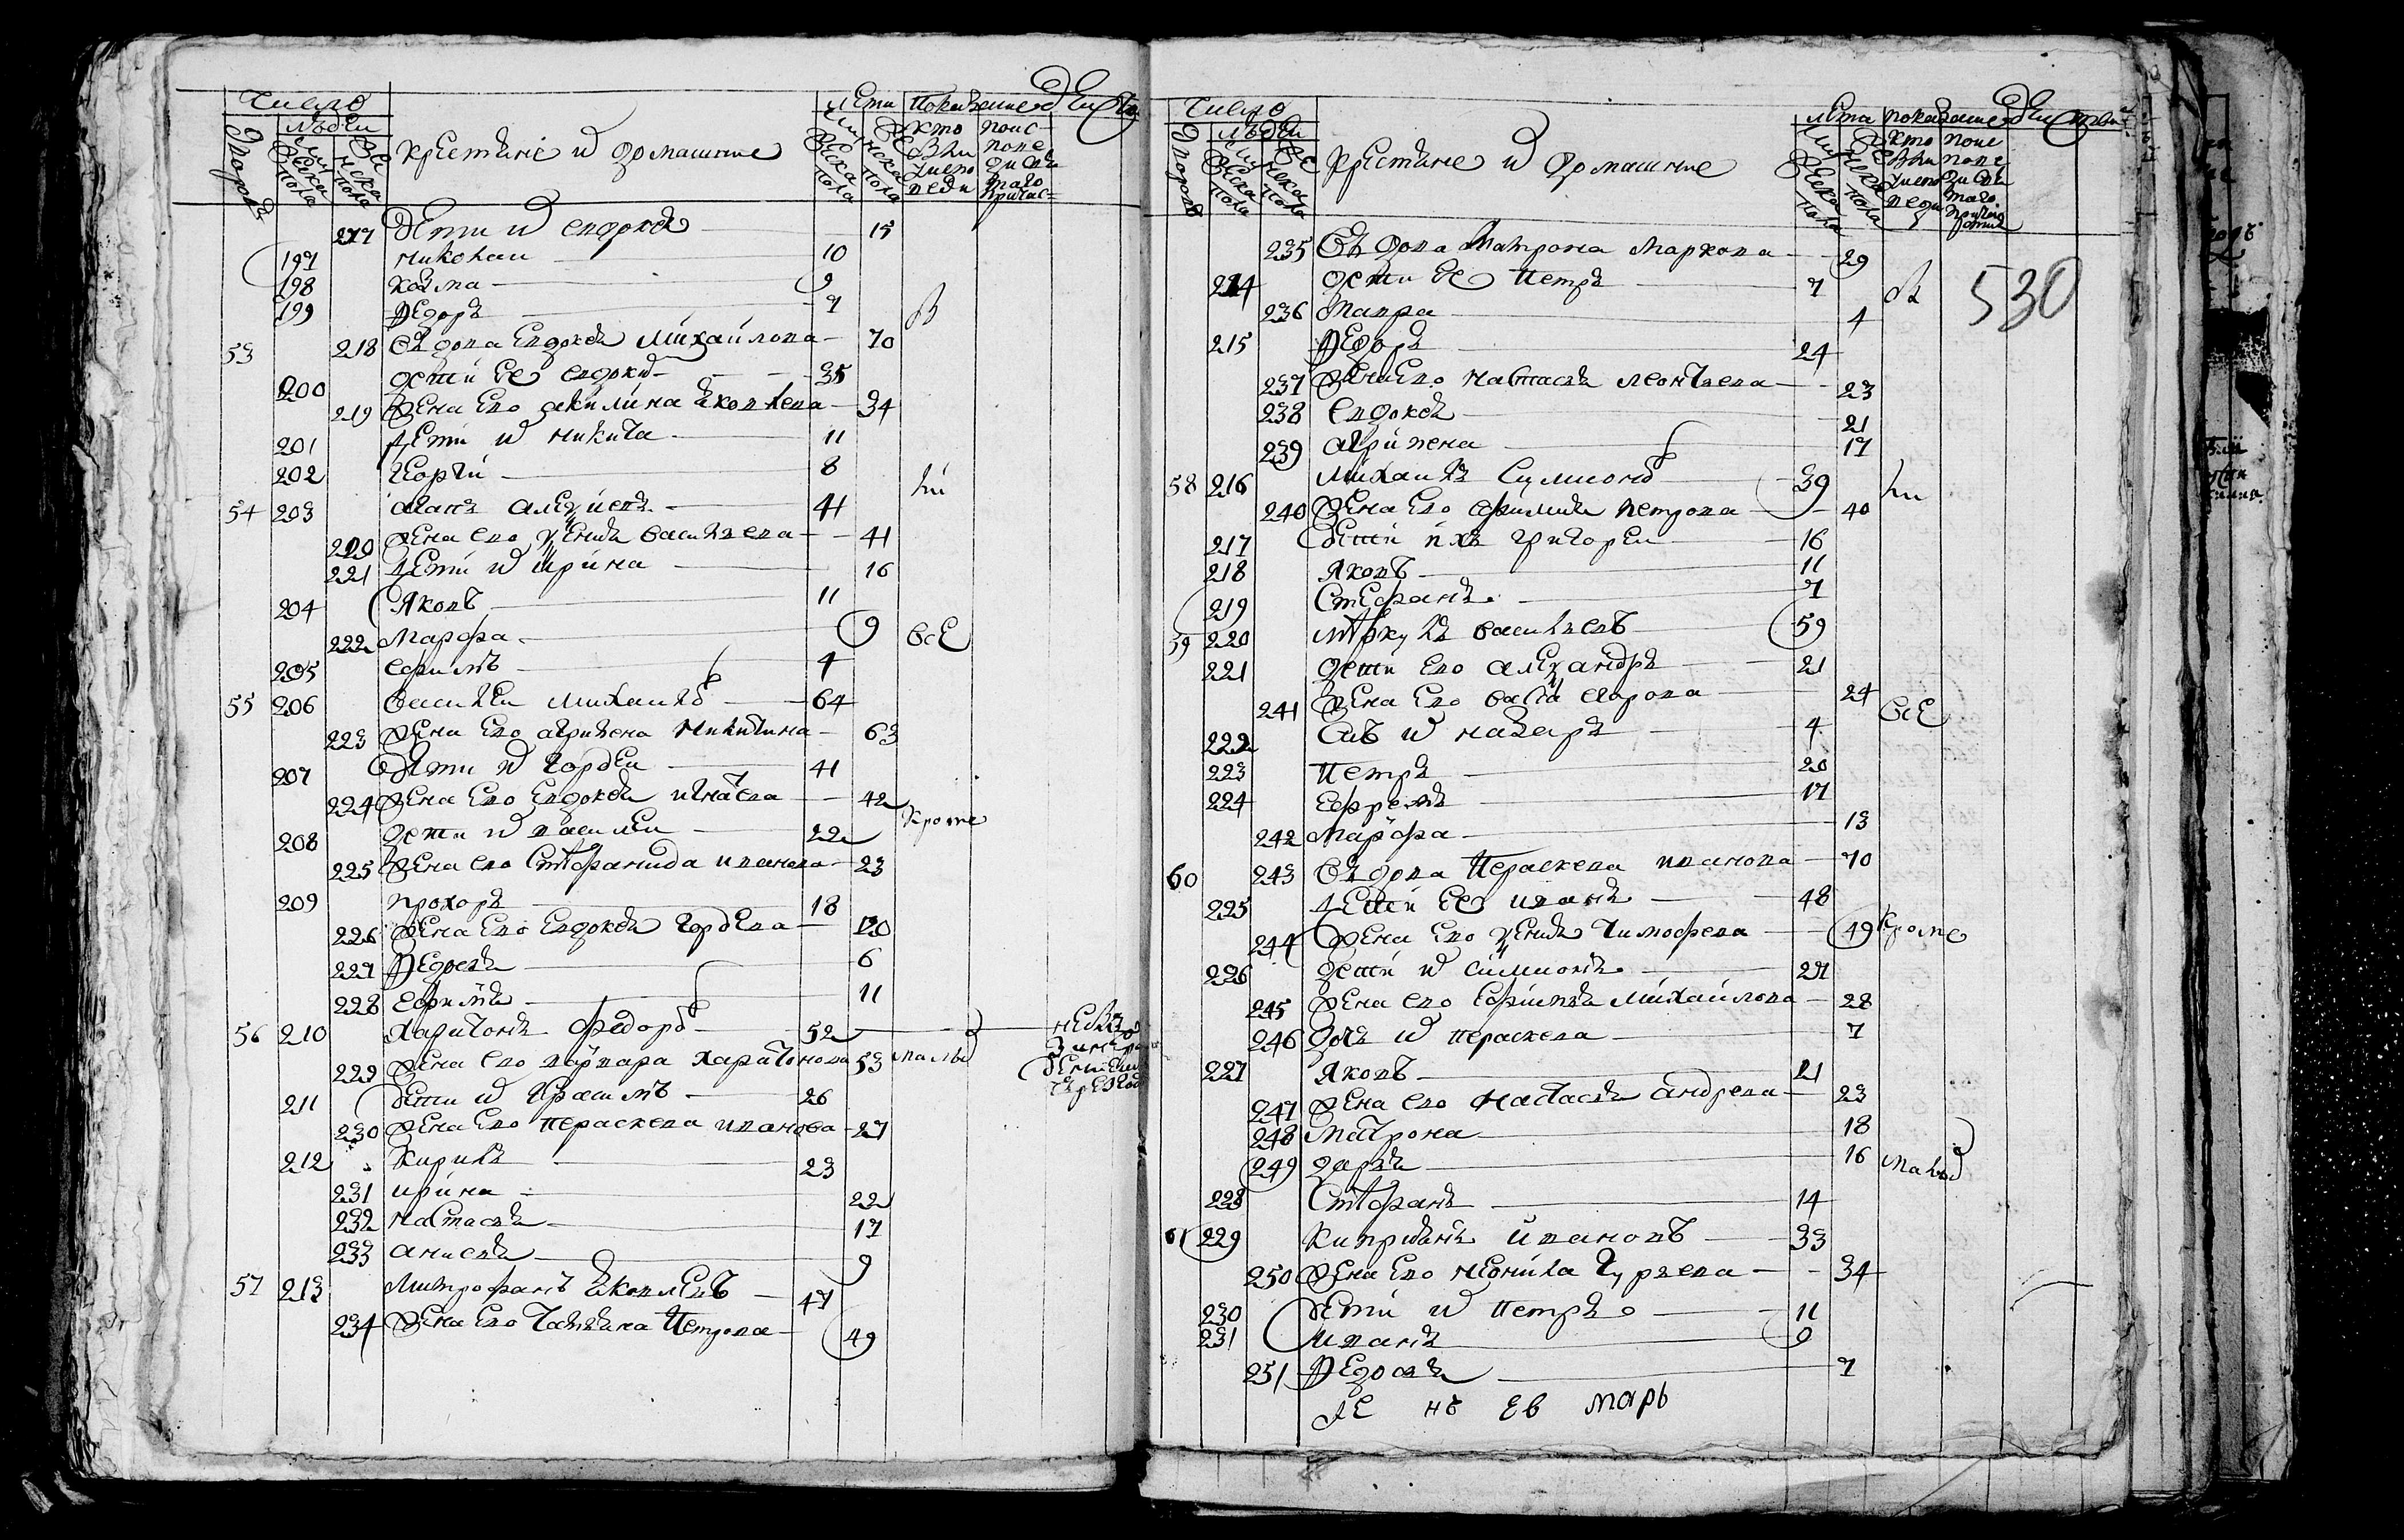 Число
людеи
Крестяне и домашние
лета
показание
кто
217 дети и евдокея 15
197 николаи 10
198 козма 9
199 федоръ 7
в
53 218 вдова евдокея михаилова 70
200 дети ее 35
219 жена его акилина яковлева 34
201 дети и никита 11
202 георги 8
ли
54 203 алексиевъ 41
220 жена его ксения василева 41
221 дети и ирина 16
204 яковъ 11
222 марфа 9
все
205 ефимъ 4
55 206 василеи михаиловъ 64
223 жена его агрипена никитина 63
207 дети и гордеи 41
224 жена его евдокея игнатева 42
кроме
208 дети и василеи 22
225 жена его стефанида иванова 23
209 прохоръ 18
226 жена его евдокея гордеева 20
227 федосья 6
228 ефимья 11
56 210 харитонъ федоровъ 52
229 жена его варвара харитонова 53
малых
211 дети и герасимъ 26
230 жена его пераскева иванова 27
212 кирилъ 23
231 ирина 22
232 настасья 17
233 анисья 9
57 213 митрофанъ яковлевъ 47
234 жена его татьяна петрова 49
Число
людеи
крестяне и домашние
лета
показание
кто
235 вдова матрона маркова 29
214 дети ее петръ 7
в
530
236 мавра 4
215 федоръ 24
237 жена его настася леонтева 23
238 евдокея 21
239 агрипена 17
58 216 михаилъ симионовъ 39
ли
240 жена его ефимия петрова 40
217 дети ихъ григореи 16
218 яковъ 11
219 стефанъ 7
59 220 меркулъ василевъ 59
221 дети его александръ 21
241 жена его васа егорова 24
все
222 сынъ и назаръ 4
223 петръ 20
224 ефремъ 17
242 марфа 13
60 243 вдова пераскева иванова 70
225 дети ее иванъ 48
244 жена его ксения тимофеева 49
кроме
226 дети и симионъ 27
245 жена его ефимья михаилова 28
246 дочь и пераскева 7
227 яковъ 21
247 жена его настася андреева 23
248 матрона 18
249 дарья 16
малых
228 стефанъ 14
61 229 киприянъ ивановъ 33
250 жена его неонила гурьева 34
230 дети и петръ 11
231 иванъ 9
251 федосья 7
нъ ев марь